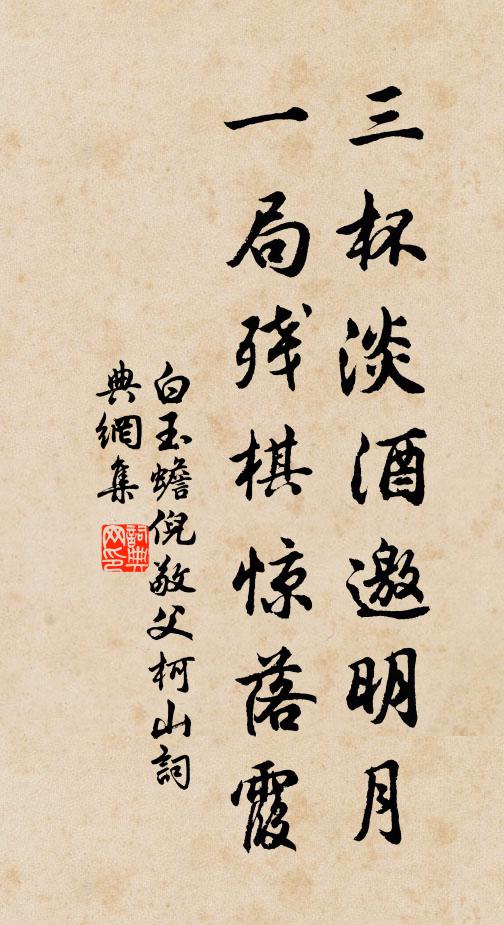 三杯淡酒邀明月
一局残棋惊落霞
白玉蟾倪敬父柯山詞
典網集
詞典網印